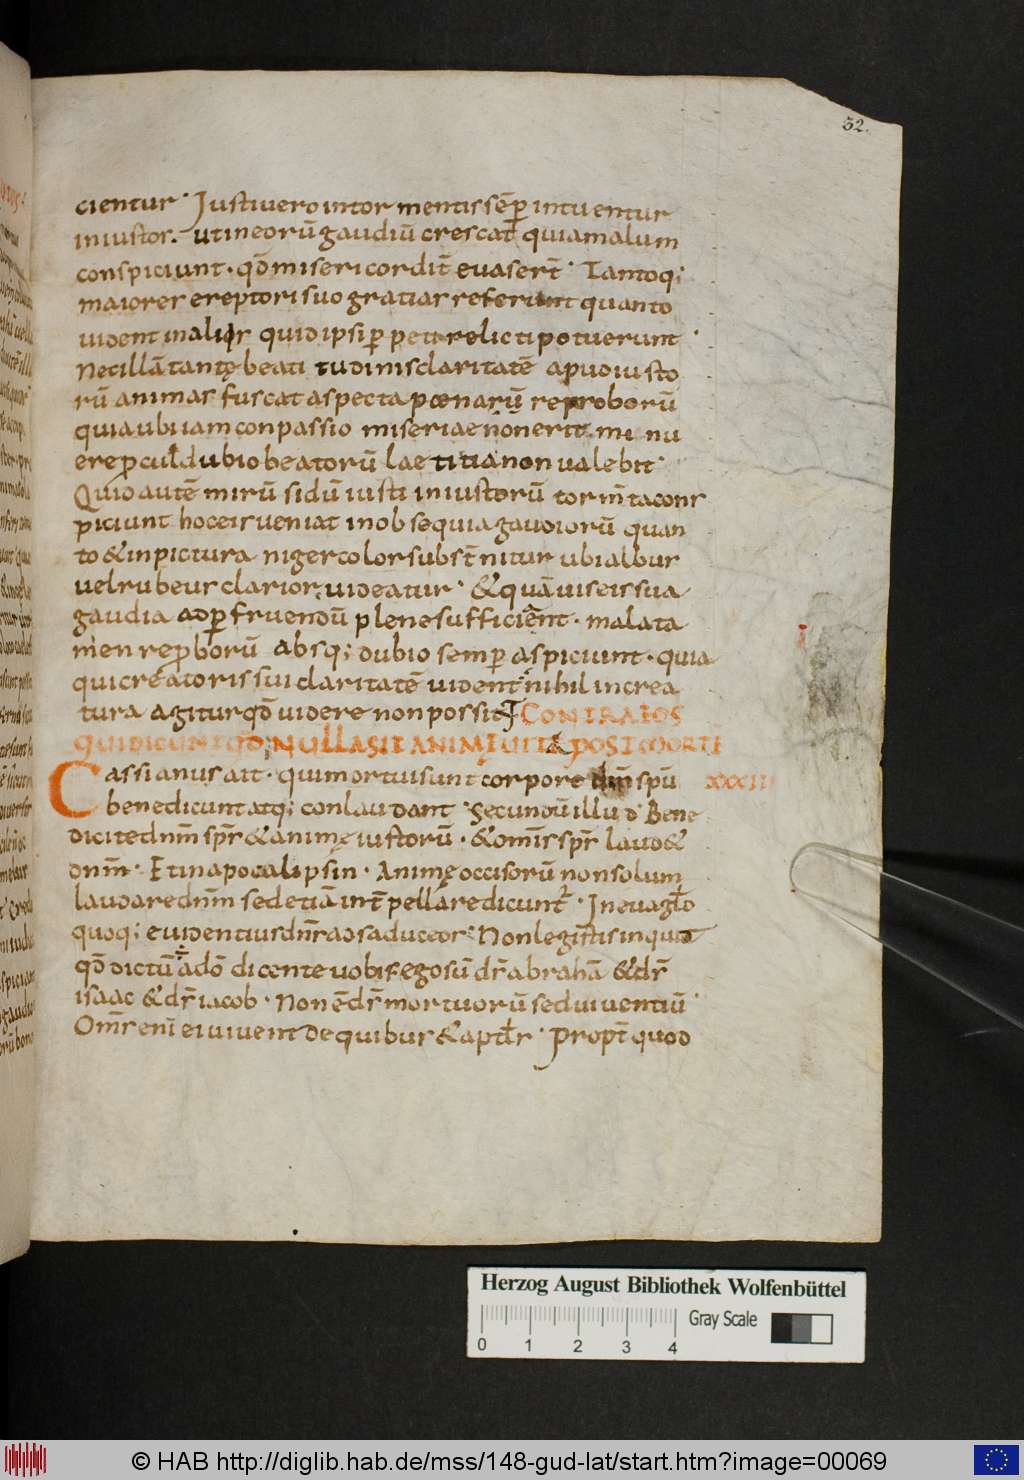 32.
cientur · Iusti vero in tormentis sēp intuentur
iniustos. ut in eorū gaudiū crescat quia malum
conspiciunt · qđ misericordit̄ evasert̄ · Tantoq;
maiores ereptori suo gratias referunt quanto
vident in aliis quid ipsi perpeti relicti potuerunt ·
Nec illā tantę beatitudinis claritatē apud iusto
rū animas fuscat aspecta poena rū reproborū
quia ubi iam conpassio miseriae nōn erit. minu
ere procul dubio beatorū laetitia non valebit ·
Quid autē mirū si dū iusti iniustorū torm̄ta cons
piciunt hoc eis veniat in obsequia gaudiorū quan
to & in pictura niger color subst̄nitur ubi albus
vel rubeus clarior videatur · & quāvis eis sua
gaudia ad perfruendū plene sufficient · mala ta
men reproborū absq; dubio semp aspiciunt · quia
qui creatoris sui claritatē vident nihil in crea
tura agitur qđ videre non possit CONTRA EOS
QUI DICUNT QĐ NULLA SIT ANIMĘ VITA POST MORTE
Cassianus ait · qui mortui sunt corpore dn̄m spū XXXIII
benedicunt atq; conlaudant · secundū illud · Bene
dicite dnm̄ spr̄ & animę iustorū · & omīs spr̄ laud&
dnm̄ · Et in apocalipsin · Animę occisorū non solum
laudare dnm̄ sed etiā int̄pellare dicunt̄ · In evaglo
quoq; evidentius dnr̄ ad saduceos · Non legistis inquid
qđ dictū ē a dō dicente vobis ego sū dr̄ abrahā & dr̄
isaac & dr̄ iacob · Non ē dr̄ mortuorū sed viventiū ·
Omr̄ enī ei vivent de quibus & aptlr · Propt̄ quod
Herzog August Bibliothek Wolfenbüttel
0 1 2 3 4 Gray Scale
© HAB http://diglib.hab.de/mss/148-gud-lat/start.htm?image=00069